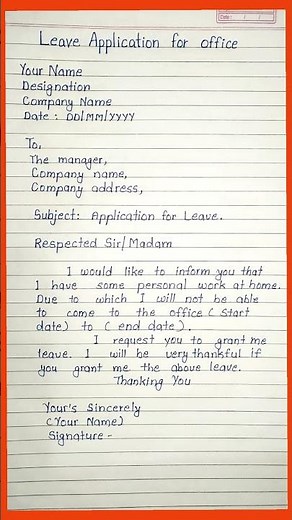 Date: / /
Leave Application for office
Your Name
Designation
Company Name
Date : DD/MM/YYYY
To,
The manager,
Company name,
Company address,
Subject: Application for Leave.
Respected Sir/Madam
I would like to inform you that
I have some personal work at home.
Due to which I will not be able
to come to the office ( start
date) to ( end date ).
I request you to grant me
leave. I will be very thankful if
you grant me the above leave.
Thanking You
Your's Sincerely
(Your Name)
Signature -